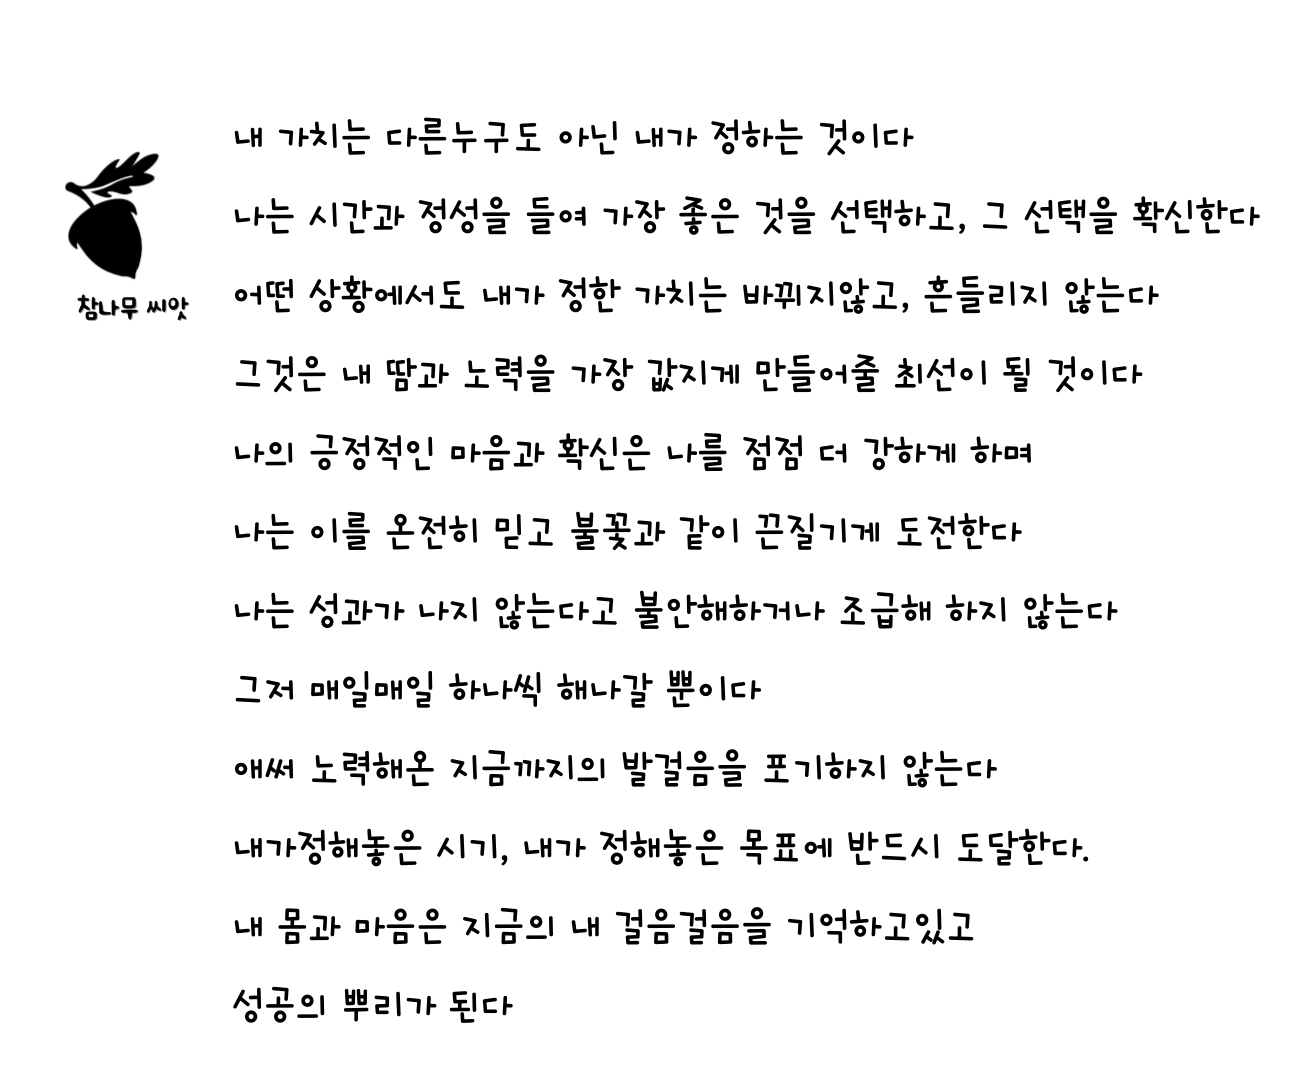 내 가치는 다른누구도 아닌 내가 정하는 것이다
나는 시간과 정성을 들여 가장 좋은 것을 선택하고, 그 선택을 확신한다
참나무 씨앗
어떤 상황에서도 내가 정한 가치는 바뀌지않고, 흔들리지 않는다
그것은 내 땀과 노력을 가장 값지게 만들어줄 최선이 될 것이다
나의 긍정적인 마음과 확신은 나를 점점 더 강하게 하며
나는 이를 온전히 믿고 불꽃과 같이 끈질기게 도전한다
나는 성과가 나지 않는다고 불안해하거나 조급해 하지 않는다
그저 매일매일 하나씩 해나갈 뿐이다
애써 노력해온 지금까지의 발걸음을 포기하지 않는다
내가정해놓은 시기, 내가 정해놓은 목표에 반드시 도달한다.
내 몸과 마음은 지금의 내 걸음걸음을 기억하고있고
성공의 뿌리가 된다